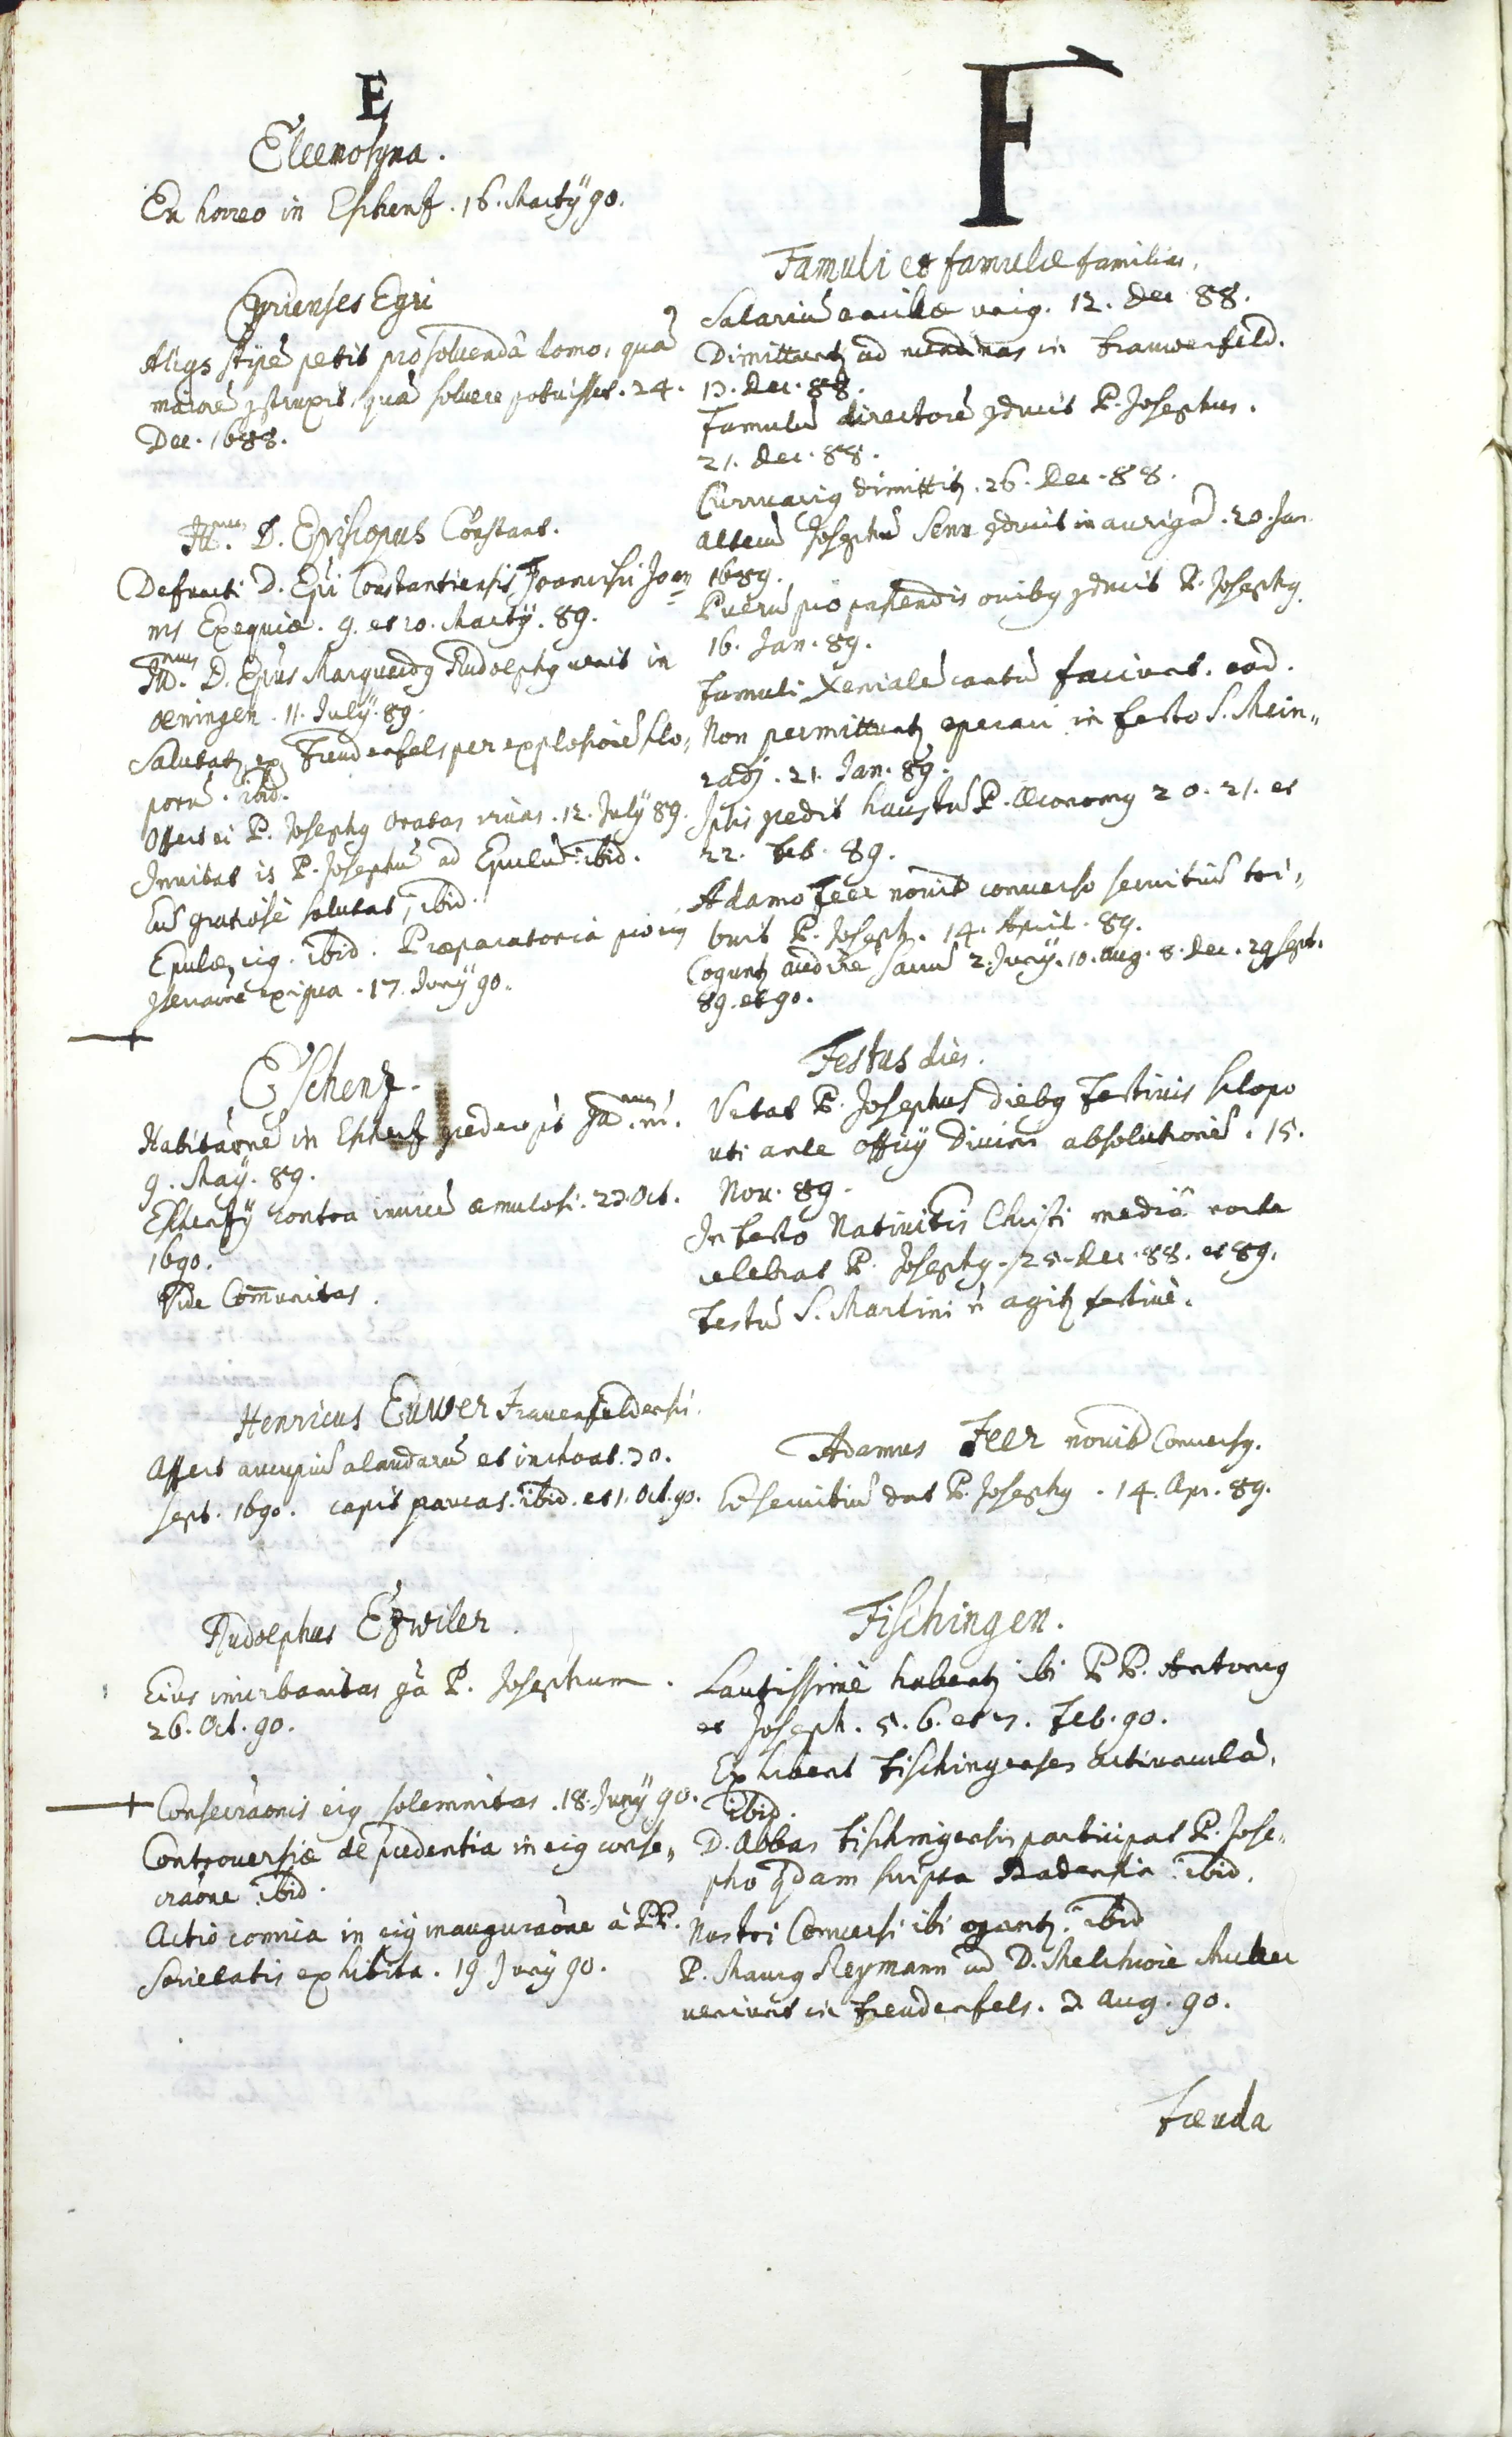 E
Eleemosyna.
Ex horreo in Eschenz. 16. Martÿ 90.
Egri
Aliqs stipē petit pro solvendâ domo, quā
maiorē ɔstruxit, quā solvere potuisset. 24.
Dec. 1688.
Ill.mus D. Episcopus Constant.
Defuncti D. Epi Constantiensis Francisci Joan
nis Exequiæ. 9. et 10. Martÿ. 89.
Ill.mus D. Epus Marquardq Rudolphq venit in
Oeningen. 11. Julÿ. 89.
Salutatr ex Freudenfels per explosioē sclo„
porū. ibid.
Offert ei P. Josephq Oratas vivas. 12. Julÿ 89.
Invitat is P. Josephū ad Epulū. ibid.
Eū gratiosè salutat, ibid.
Epulæ eiq. ibid. Præparatoria pro eiq
ɔsecraōne exigua. 17. Junÿ 90.
Eschenz.
Habitaōnē in Eschenz Ill.mus n̄.
9. Maÿ. 89.
Eschenzÿ contra invicē æmulosi. 23. Oct.
1690.
Vide Com̄unitas.
Henricus Euwer Frauenfeldensis.
Affert aucupiū alaudarū et inchoat. 30.
Sept. 1690. capit paucas. ibid. et 1. Oct. 90.
Rudolphus Ezwiler.
Eius inurbanitas ɔ̄ā P. Josephum.
26. Oct. 90.
Consecraōnis eiq solemnitas. 18. Junÿ 90.
Controversiæ de p̄cedentia in eiq conse„
craōne ibid.
Actio comica in eiq inauguraōne â P.P.
Societatis exhibita. 19 Junÿ 90.
F
Famuli et famulæ familiæ.
Salariū ancillæ uniq. 12. Dec 88.
Dimittuntr ad nundinas in Frauwenfeld.
13. Dec. 88.
Famulū directorē ɔducit P. Josephus.
21. Dec. 88.
Currucariq dimittitr. 26. Dec. 88.
Alterū Josephū Senn ɔducit in aurigā. 20. Jan
1689.
Puerū pro pascendis ovibq ɔducit P. Josephq
16. Jan. 89.
Famuli Xenialē cantū faciunt. eod.
Non permittuntr operari in festo S. Mein„
radj. 21. Jan. 89.
Ipsis ɔcedit haustū P. Œconomq 20. 21. et
22. Feb. 89.
Adamo Feer novit converso servitiū tri„
buit P. Joseph. 14. April. 89.
Coguntr audire sacrū 2. Junÿ. 10. Aug. 8. Dec. 29 Sept.
89. et 90.
Festus dies.
Vetat P. Josephus diebq Festivis sclopo
uti ante Officÿ Divini absolutionē. 15.
Nov. 89.
In Festo Nativitis Christi mediâ nocte
celebrat P. Josephq. 25. Dec. 88. et 89.
Festū S. Martini n̄ agitr festivè.
Adamus Feer novit Conversq.
Ei servitiū dat P. Josephq. 14. Apr. 89.
Fischingen.
Lautissimè habentr ibi P P. Antoniq
et Joseph. 5. 6. et 7. Feb. 90.
Exhibent Fischingenses actiunculā,
ibid.
D. Abbas Fischingensis participat P. Jose„
pho q̄dam scripta Badensia. ibid.
Nostri Conversi ibi ibid
P. Maurq Reymann ad D. Melchiorē Muller
veniunt in Freudenfels. 3 Aug. 90.
Fœuda